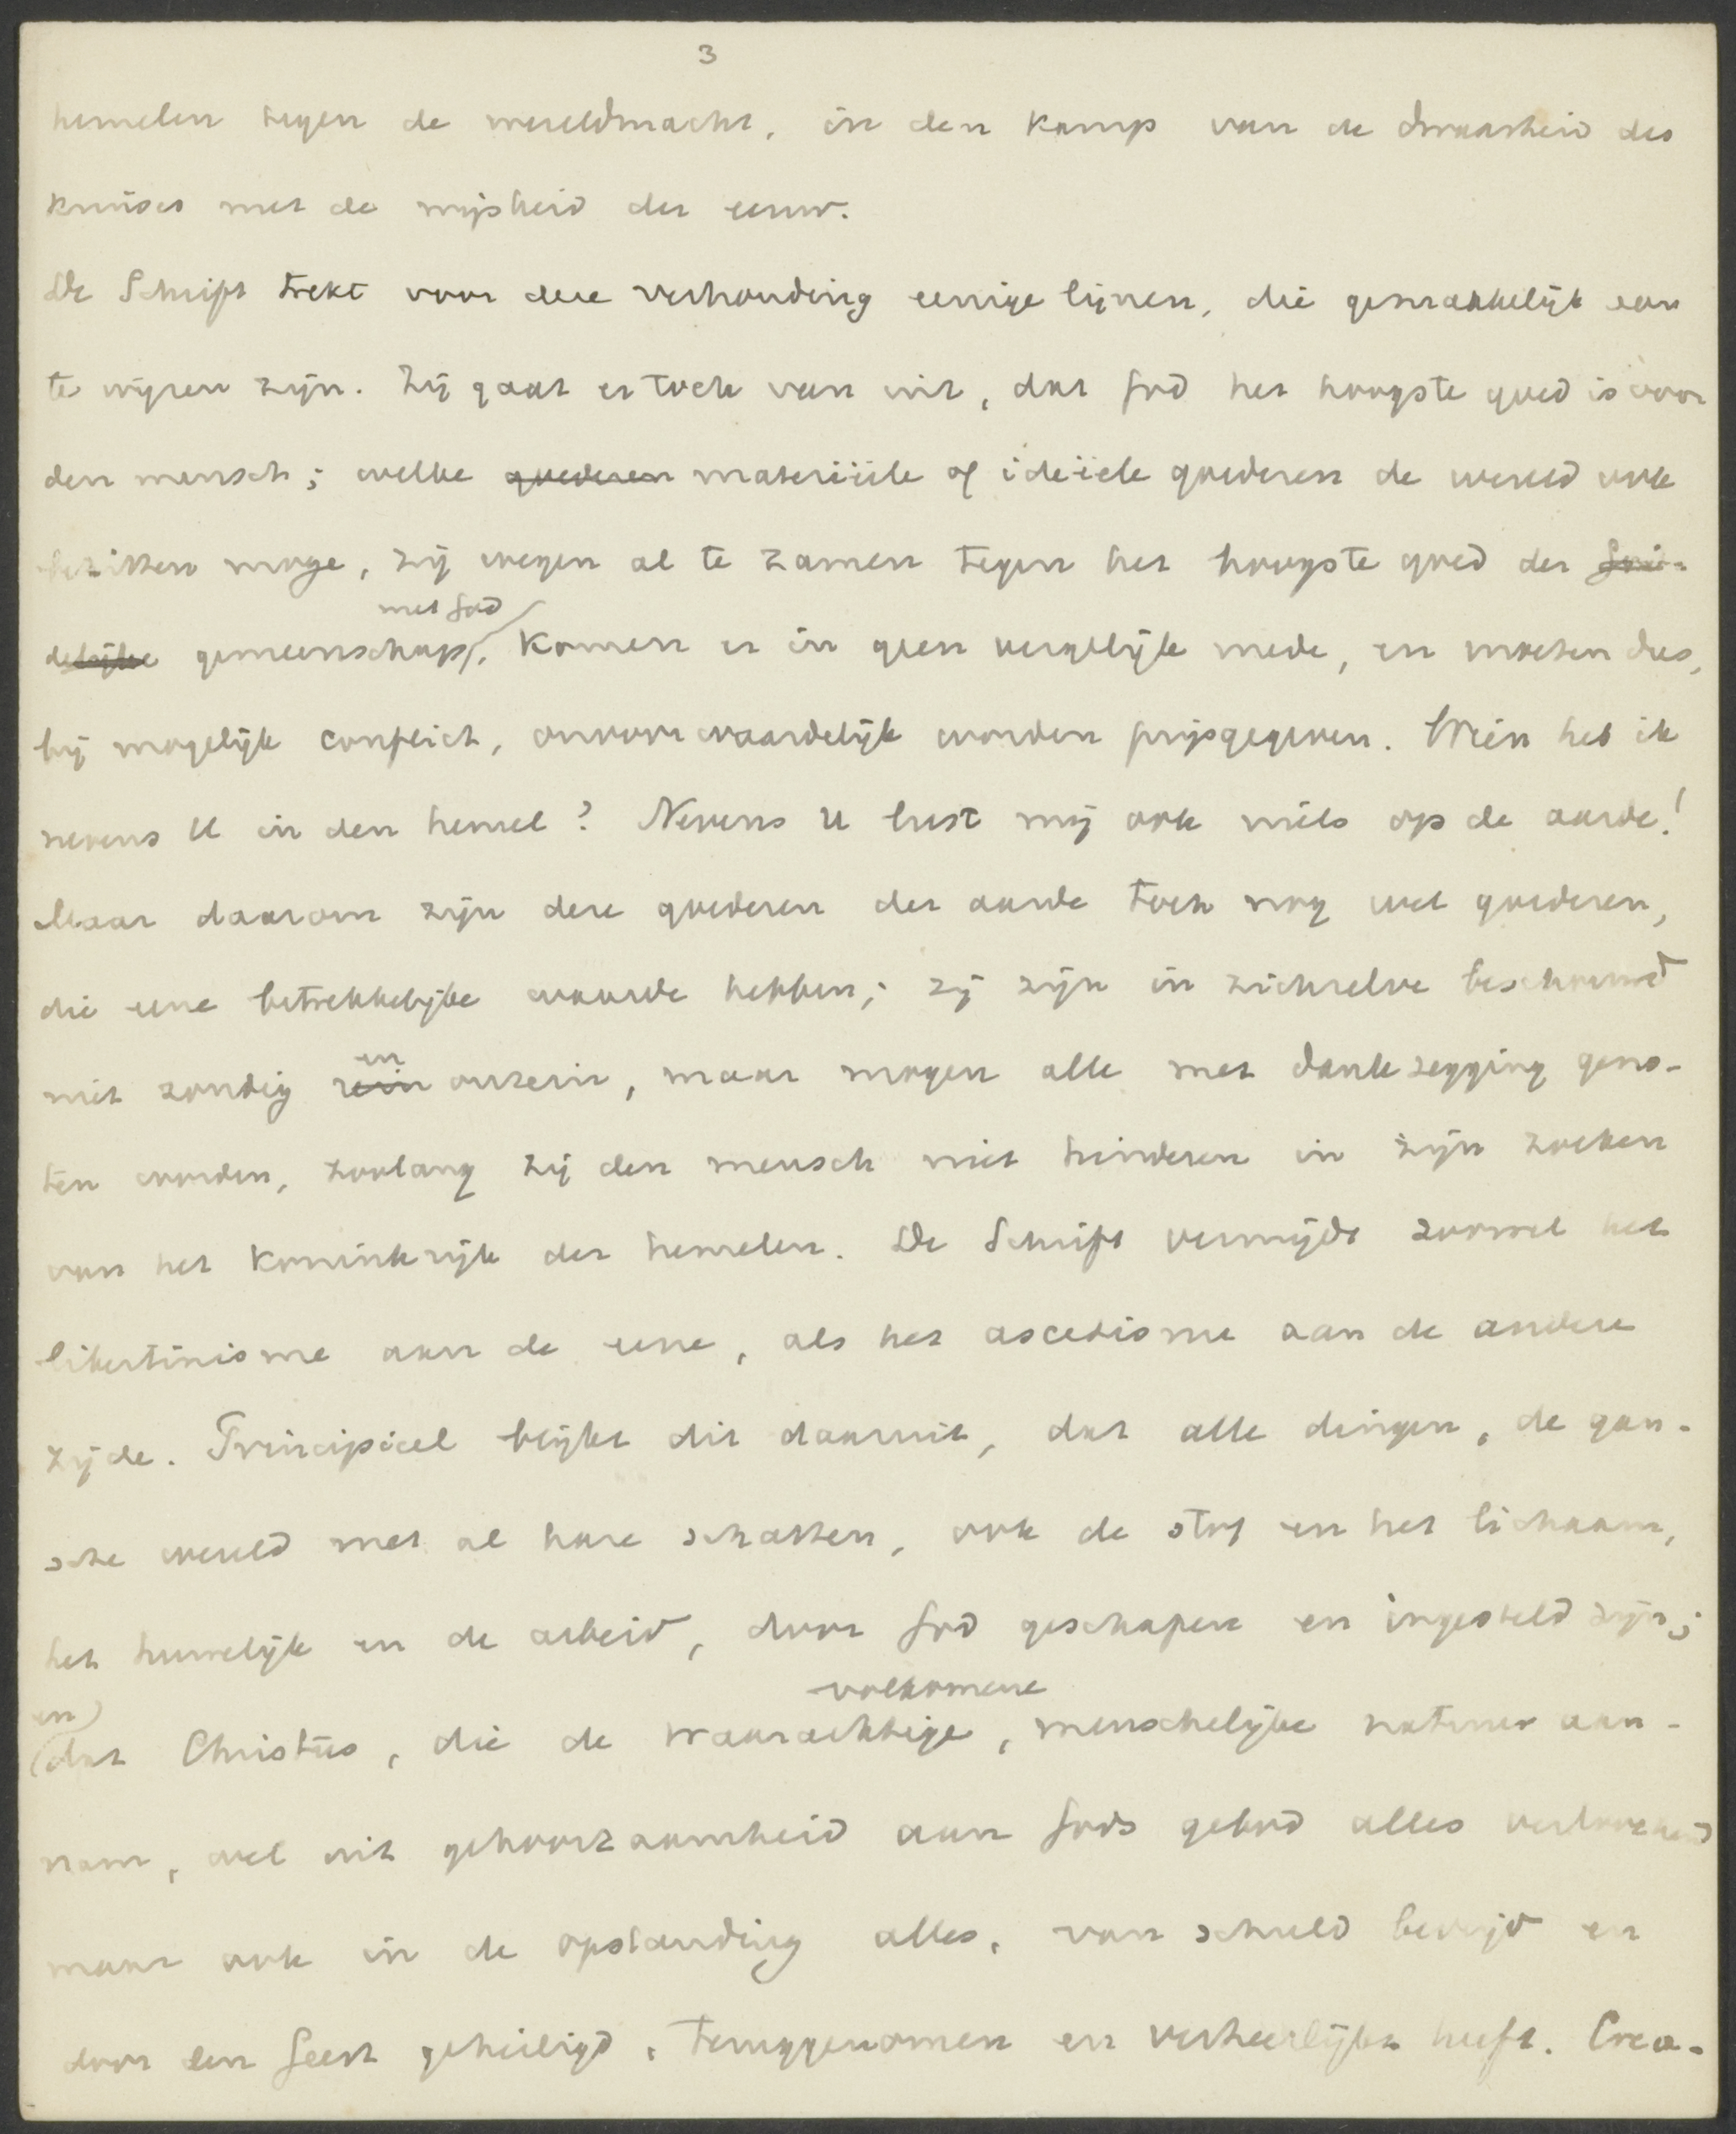 3
hemelen tegen de wereldmacht, in den kamp van de dwaasheid des
kruises met de wijsheid der eeuw.
De Schrift trekt voor deze verhouding eenige lijnen, die gemakkelijk aan
te wijzen zijn. Zij gaat er toch van uit, dat God het hoogste goed is voor
den mensch; welke goederen materiëele of ideëele goederen de wereld ook
bezitten moge, zij wegen al te zamen tegen het hoogste goed der God-
met God
delijke gemeenschap, komen er in geen vergelijk mede, en moeten dus,
bij mogelijk conflict, onvoorwaardelijk worden prijsgegeven. Wien heb ik
nevens U in den hemel? Nevens U lust mij ook niets op de aarde!
Maar daarom zijn deze goederen der aarde toch nog wel goederen,
die eene betrekkelijke waarde hebben; zij zijn in zichzelve beschouwd
en
niet zondig rein onrein, maar mogen alle met dankzegging geno-
ten worden, zoolang zij den mensch niet hinderen in zijn zoeken
van het koninkrijk der hemelen. De Schrift vermijdt zoowel het
libertinisme aan de eene, als het ascetisme aan de andere
zijde. Principieel blijkt dit daaruit, dat alle dingen, de gan-
sche wereld met al hare schatten, ook de stof en het lichaam,
het huwelijk en de arbeid, door God geschapen en ingesteld zijn;
en volkomene
dat Christus, die de waarachtige, menschelijke natuur aan-
nam, wel uit gehoorzaamheid aan Gods gebod alles verloochend
maar ook in de opstanding alles, van schuld bevrijd en
door den Geest geheiligd, teruggenomen en verheerlijkt heeft. Crea-